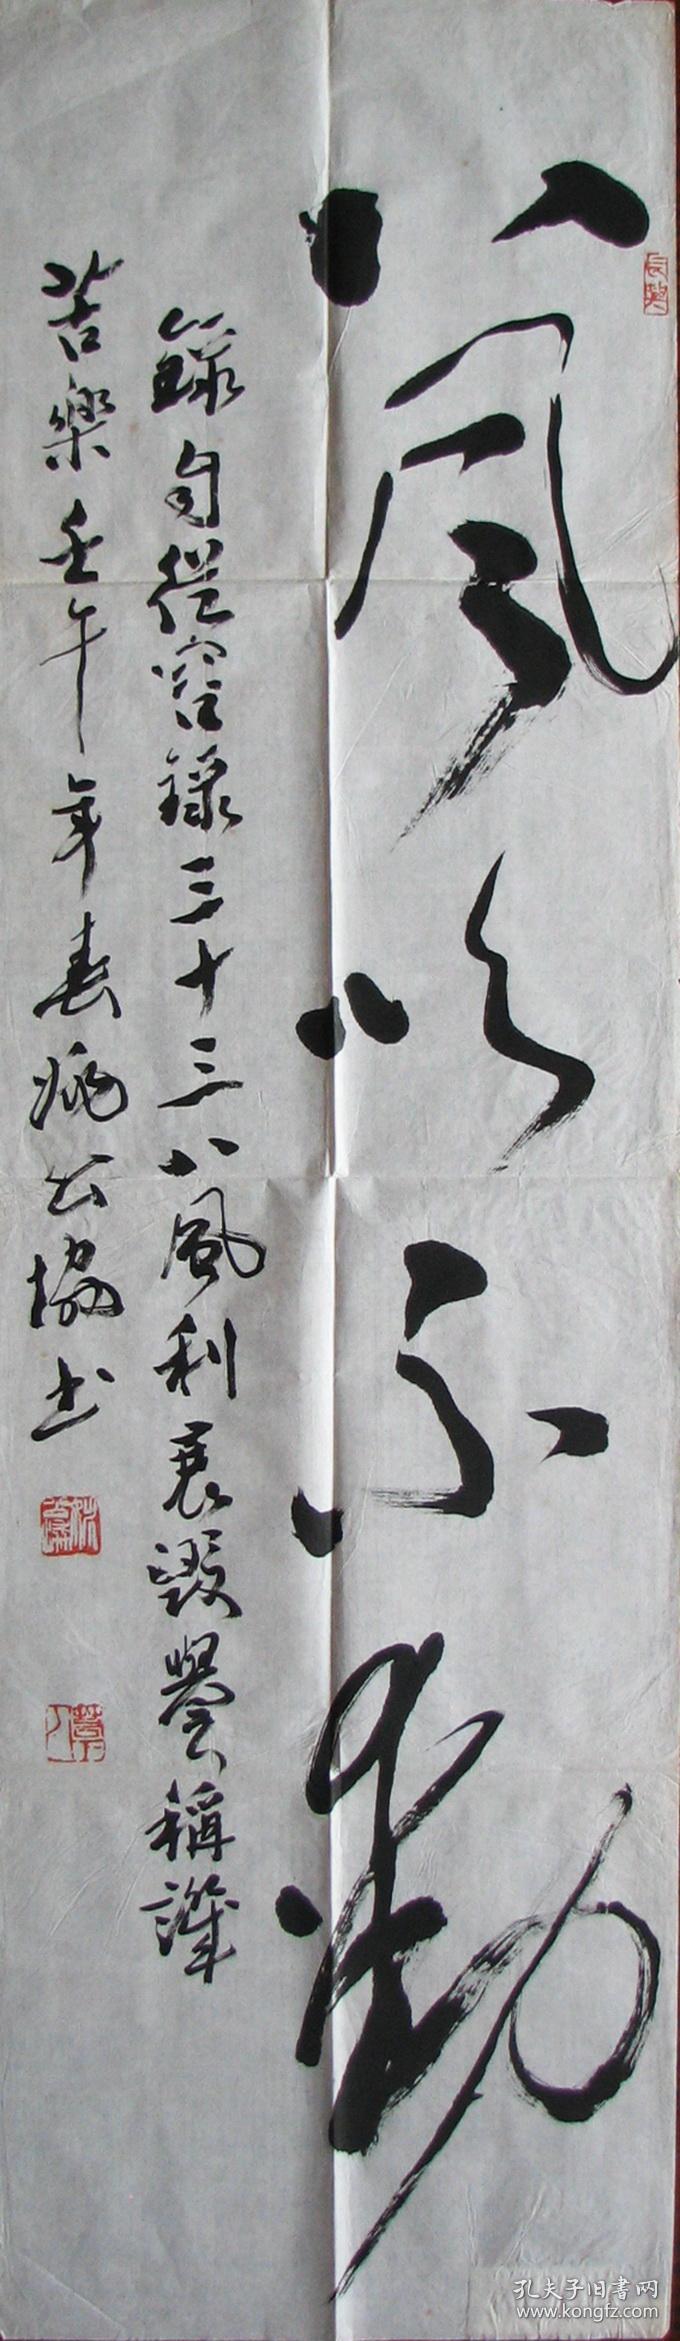 八風吹不動
錄自從容錄三十三八風利衰毀譽稱譏
苦樂壬午年春病公協书
孔夫子旧書网
www.kongfz.com